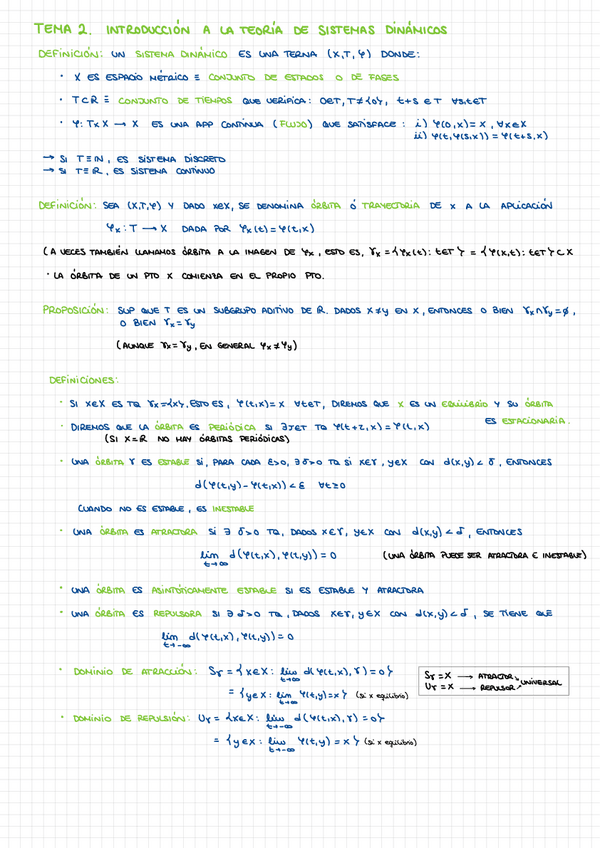 TEMA 2. INTRODUCCIÓN A LA TEORÍA DE SISTEMAS DINÁMICOS
DEFINICIÓN: UN SISTEMA DINÁMICO ES UNA TERNA (X,T,φ) DONDE:
· X ES ESPACIO MÉTRICO ≡ CONJUNTO DE ESTADOS O DE FASES
· T⊂ℝ ≡ CONJUNTO DE TIEMPOS QUE VERIFICA: 0∈T, T≠{0}, t+s ∈ T ∀s,t∈T
· φ: T×X → X ES UNA APP CONTINUA (FLUJO) QUE SATISFACE: i) φ(0,x)=x, ∀x∈X
ii) φ(t,φ(s,x)) = φ(t+s,x)
→ SI T≡ℕ, ES SISTEMA DISCRETO
→ SI T≡ℝ, ES SISTEMA CONTINUO
DEFINICIÓN: SEA (X,T,φ) Y DADO x∈X, SE DENOMINA ÓRBITA Ó TRAYECTORIA DE X A LA APLICACIÓN
φx: T → X DADA POR φx(t)=φ(t,x)
(A VECES TAMBIÉN LLAMAMOS ÓRBITA A LA IMAGEN DE φx, ESTO ES, γx = {φx(t): t∈T} = {φ(x,t): t∈T} ⊂ X
· LA ÓRBITA DE UN PTO X COMIENZA EN EL PROPIO PTO.
PROPOSICIÓN: SUP QUE T ES UN SUBGRUPO ADITIVO DE ℝ. DADOS X≠y EN X, ENTONCES O BIEN γx∩γy=∅,
O BIEN γx=γy
(AUNQUE γx=γy, EN GENERAL φx≠φy)
DEFINICIONES:
· SI x∈X ES TQ γx={x}, ESTO ES, φ(t,x)=x ∀t∈T, DIREMOS QUE X ES UN EQUILIBRIO Y SU ÓRBITA
ES ESTACIONARIA.
· DIREMOS QUE LA ÓRBITA ES PERIÓDICA SI ∃τ∈T TQ φ(t+τ,x)=φ(t,x)
(SI X=ℝ NO HAY ÓRBITAS PERIÓDICAS)
· UNA ÓRBITA γ ES ESTABLE SI, PARA CADA ε>0, ∃δ>0 TQ SI x∈γ, y∈X CON d(x,y)<δ, ENTONCES
d(φ(t,y)-φ(t,x))<ε ∀t≥0
CUANDO NO ES ESTABLE, ES INESTABLE
· UNA ÓRBITA ES ATRACTORA SI ∃ δ>0 TQ, DADOS x∈γ, y∈X CON d(x,y)<δ, ENTONCES
lim t→∞ d(φ(t,x), φ(t,y))=0 (UNA ÓRBITA PUEDE SER ATRACTORA E INESTABLE)
· UNA ÓRBITA ES ASINTÓTICAMENTE ESTABLE SI ES ESTABLE Y ATRACTORA
· UNA ÓRBITA ES REPULSORA SI ∃ δ>0 TQ, DADOS x∈γ, y∈X CON d(x,y)<δ, SE TIENE QUE
lim t→-∞ d(φ(t,x), φ(t,y))=0
· DOMINIO DE ATRACCIÓN: Sγ = {x∈X: lim t→∞ d(φ(t,x), γ)=0}
= {y∈X: lim t→∞ φ(t,y)=x} (si x equilibrio)
Sγ=X → ATRACTOR
Uγ=X → REPULSOR
UNIVERSAL
· DOMINIO DE REPULSIÓN: Uγ = {x∈X: lim t→-∞ d(φ(t,x), γ)=0}
= {y∈X: lim t→-∞ φ(t,y)=x} (si x equilibrio)